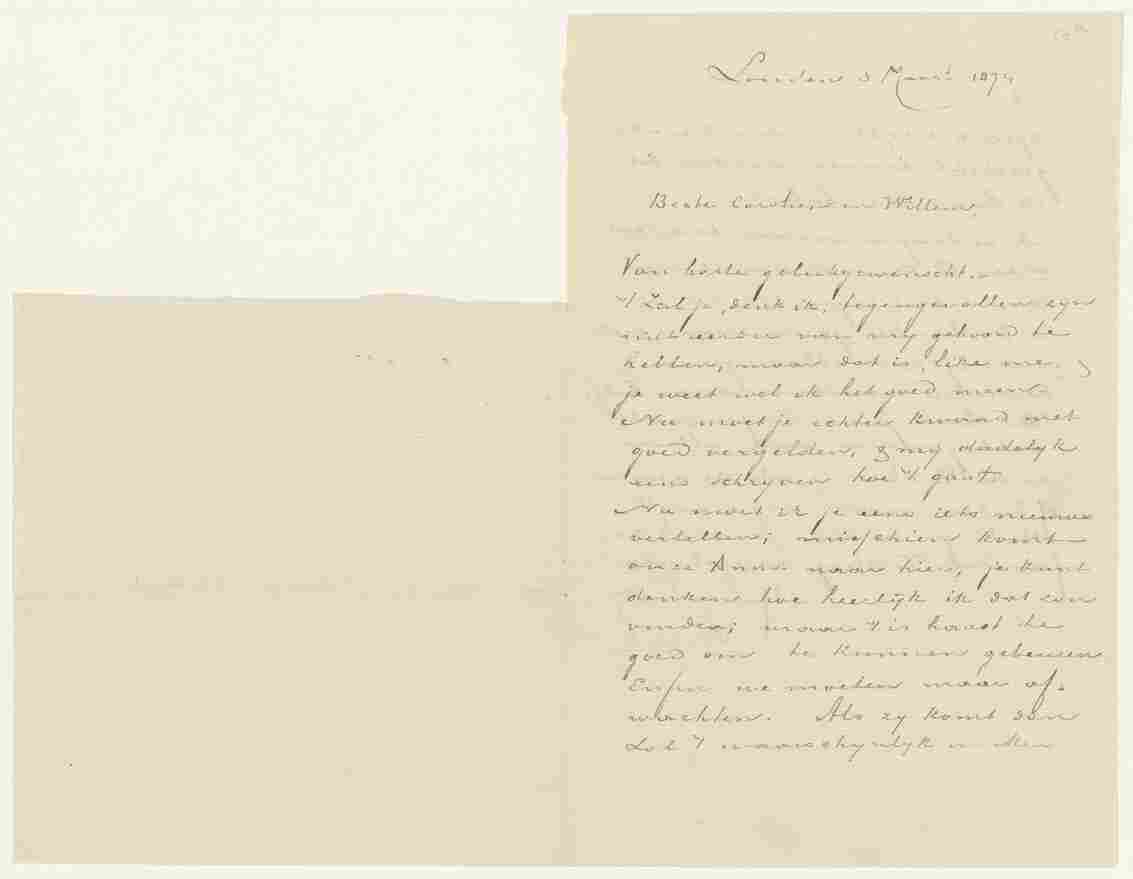 Londen 3 Maart 1874
Beste Carolien en Willem,
Van harte geluk gewenscht.
't Zal je, denk ik, tegengevallen zyn
niet eerder van my gehoord te
hebben, maar dat is „like me” &
je weet wel ik het goed meen.
Nu moet je echter kwaad met
goed vergelden, & my dadelyk
eens schryven hoe 't gaat.
Nu moet ik je eens iets nieuws
vertellen; misschien komt
onze Anna naar hier, je kunt
denken hoe heerlyk ik dat zou
vinden; maar 't is haast te
goed om te kunnen gebeuren
Enfin we moeten maar af-
wachten. Als zy komt dan
zal 't waarschynlyk in Mei